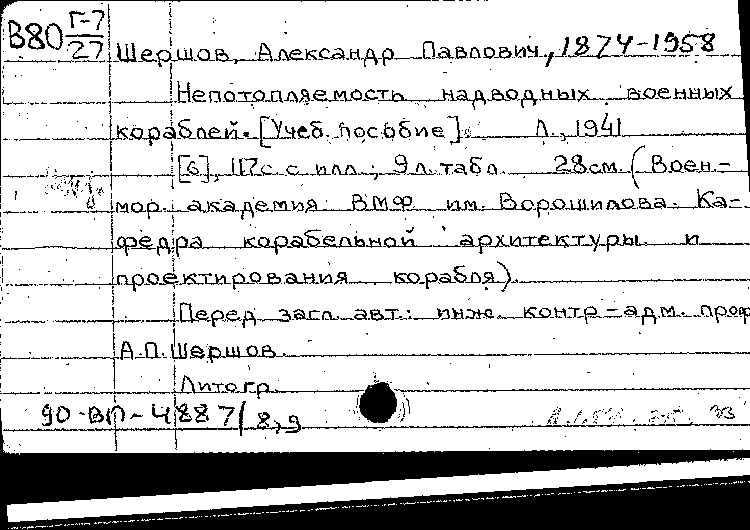 В80 Г-7
27
Шершов, Александр Павлович, 1874-1958
Непотопляемость надводных военных
кораблей. [Учеб. пособие]. Л., 1941
[6], 117с. с илл.; 9 л. табл. 28см. (Воен.-
мор. академия ВМФ им. Ворошилова. Ка-
федра корабельной архитектуры и
проектирования корабля).
Перед загл. авт.: инж. контр-адм. проф
А.П. Шершов.
Литогр.
90-ВП-4887/8,9